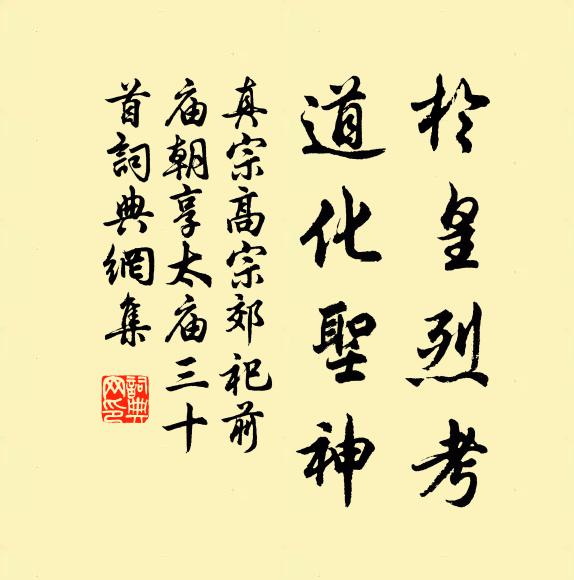 於皇烈考
道化聖神
真宗高宗郊祀前
庙朝享太庙三十
首詞典網集
詞典
网印